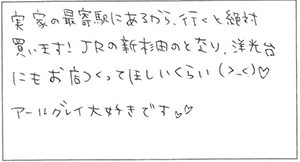 実家の最寄駅にあるから、行くと絶対
買います! JRの新杉田のとなり、洋光台
にもお店つくってほしいくらい(>_<)♡
アールグレイ大好きです♡♡